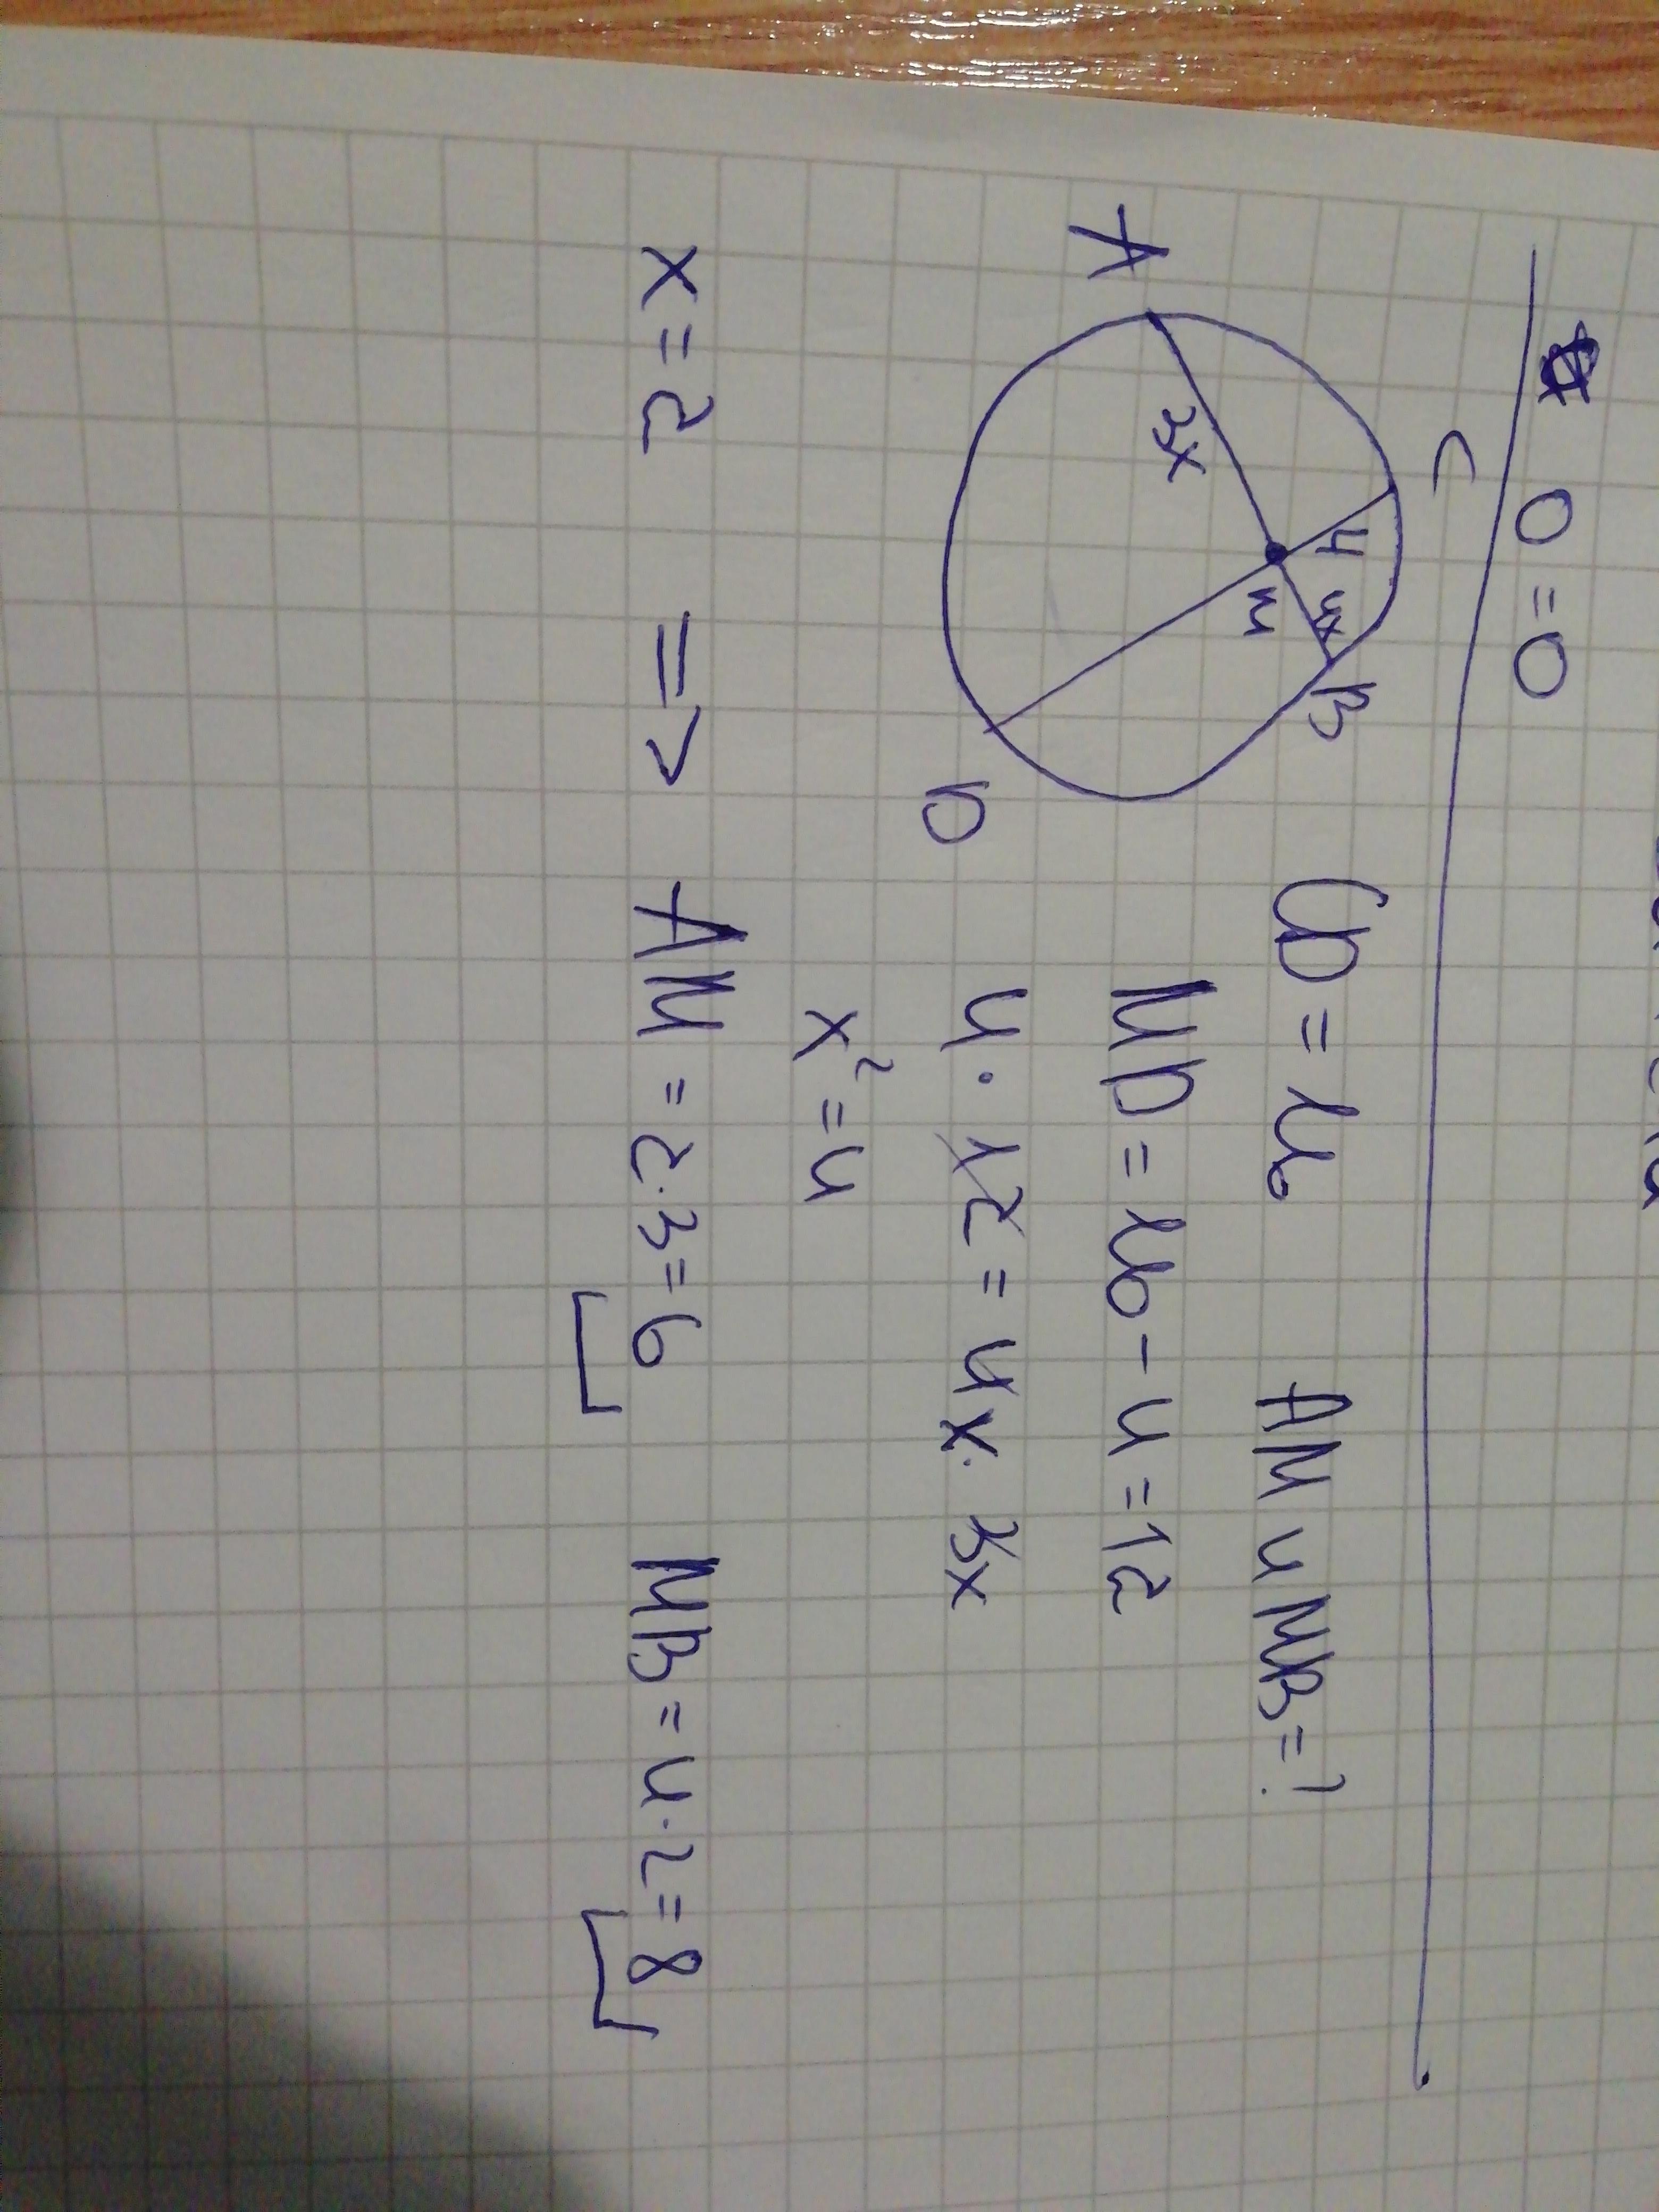 0 = 0
C
A 3x 4 4x B
M
D
CD = 16 AM и MB = ?
MD = 16 - 4 = 12
4 · 12 = 4x · 3x
x² = 4
x = 2 => AM = 2 · 3 = 6 MB = 4 · 2 = 8